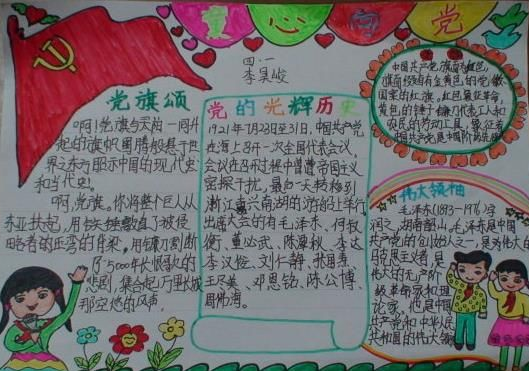 童心向党
四·一
李昊峻
党旗颂
啊!党旗与天始一同升
起的旗帜,图腾般悬于世
界之东方昭示中国的现代史
和当代史。
啊,党旗。你将整个巨人从
东亚扶起,用
略者的 的脊梁。用镰刀割断
了5000年长恨歌的
悲剧,集合起万里长城
那 的风声。
党的光辉历史
1921年7月23日至31日,中国共产党
在上海召开一次全国代表会议,
会议在召开过程中曾遭帝国主义
密探干扰。最后一天转移到
浙江嘉兴南湖的游船上举行
出席大会的有毛泽东、何叔
衡、董必武、陈潭秋、李达
李汉俊、刘仁静、张国焘、
王尽美、邓恩铭、陈公博、
周佛海。
中国共产党旗面为红色,
旗面缀有金黄色的党徽
图案的红旗。红色象征革命,
黄色的锤子镰刀代表工人和
农民的劳动工具,象征着
中国共产党是中国
伟大领袖
毛泽东(1893-1976)字
润之,湖南韶山 毛泽东是中国
共产党的创始人之一,是为伟大
马克思主义者,是
伟大的无产阶
级革命家和理
论家,他是中国
共产党和中华人民
共和国的伟大领